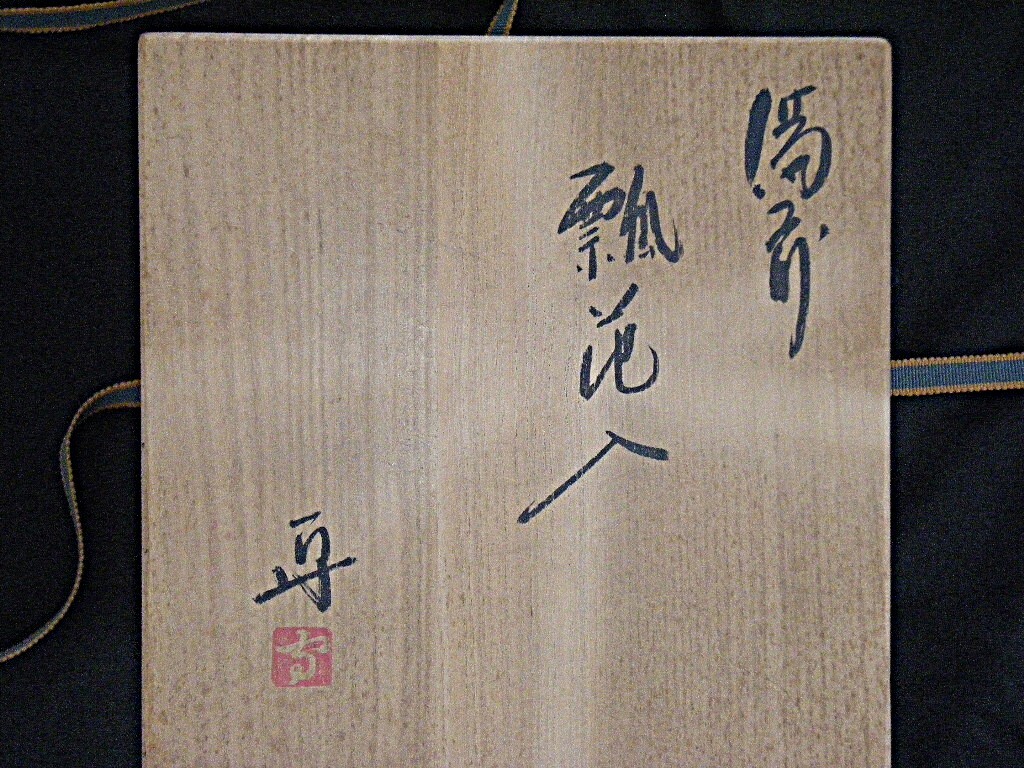 備前
瓢花入